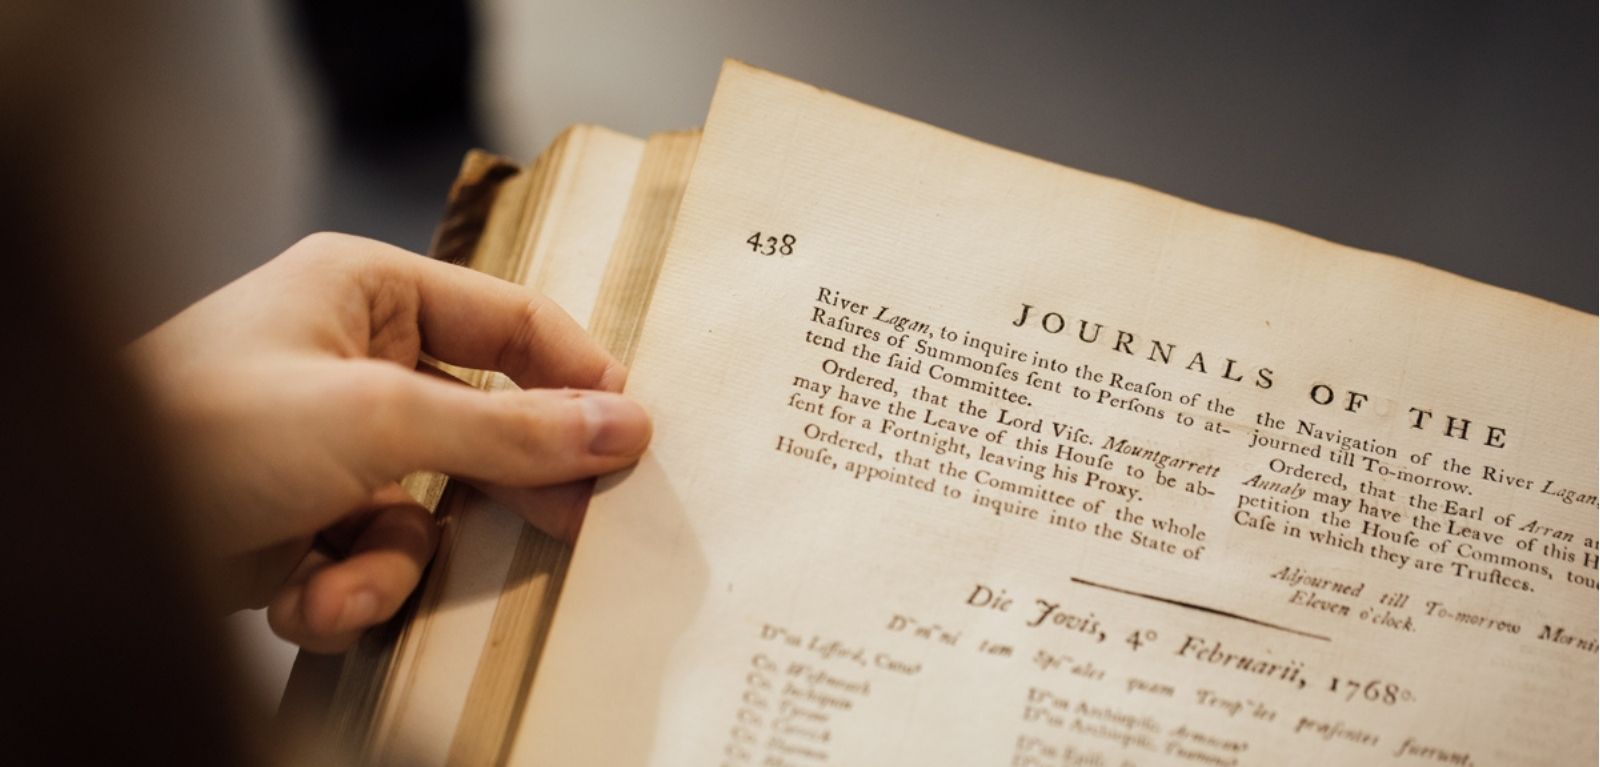 438
JOURNALS OF THE
River Lagan, to inquire into the Reaſon of the
Raſures of Summonſes ſent to Perſons to at-
tend the ſaid Committee.
Ordered, that the Lord Viſc. Mountgarrett
may have the Leave of this Houſe to be ab-
ſent for a Fortnight, leaving his Proxy.
Ordered, that the Committee of the whole
Houſe, appointed to inquire into the State of
the Navigation of the River Lagan,
journed till To-morrow.
Ordered, that the Earl of Arran
Annaly may have the Leave of this
petition the Houſe of Commons,
Caſe in which they are Truſtees.
Adjourned till To-morrow
Eleven o'clock.
Die Jovis, 4° Februarii, 1768°.
D~m~ni tam Spi~ales quam Temp~les præſentes fuerunt,